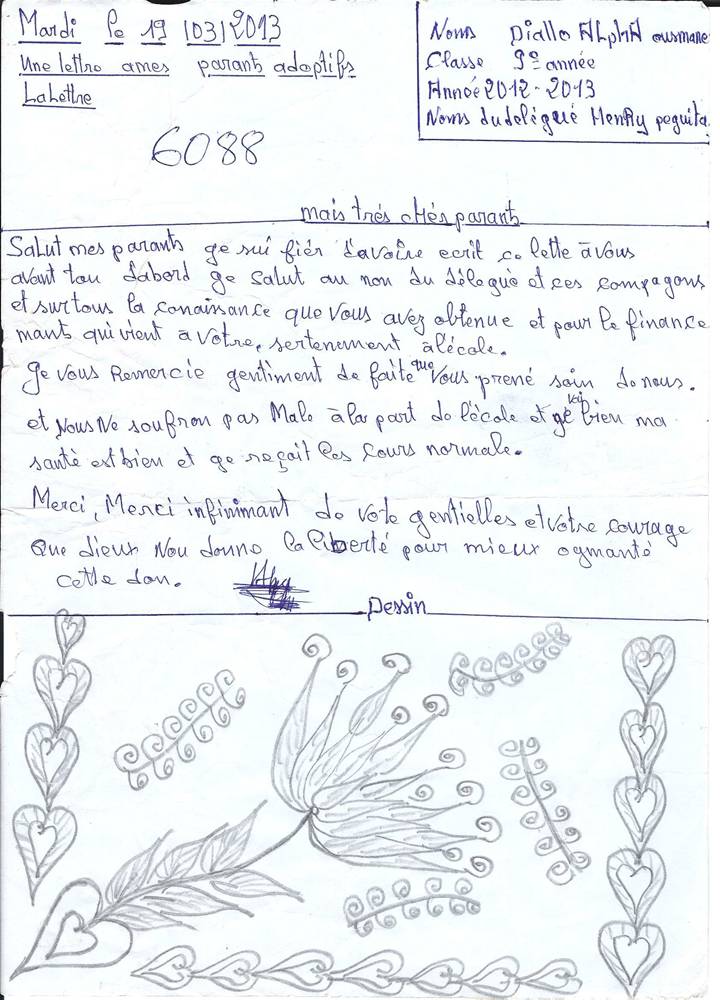 Mardi le 19 /03/2013
Une lettre ames parant adoptifs
La lettre
Noms Diallo ALPHA ousmane
Classe 9e année
Année 2012-2013
Noms du délégué Henry peguita
6088
mais trés chés parants
Salut mes parants ge sui fièr d'avoire ecrit ce lette à vous
avant tou d'abord ge salut au non du délegué et ces compagons
et surtous la conaissance que vous avez obtenue et pour le finance
mant qui vient a votre, sertenement à l'école.
Ge vous Remercie gentiment de faite que vous prené soin de nous.
et Nous Ne soufron pas Male à la part de l'école et ge vai bien ma
santé est bien et ge reçait les cours normale.
Merci, Merci infinimant de vote gentielles et votre courage
Que dieux Nou donne la liberté pour mieux ogmanté
cette don.
Dessin